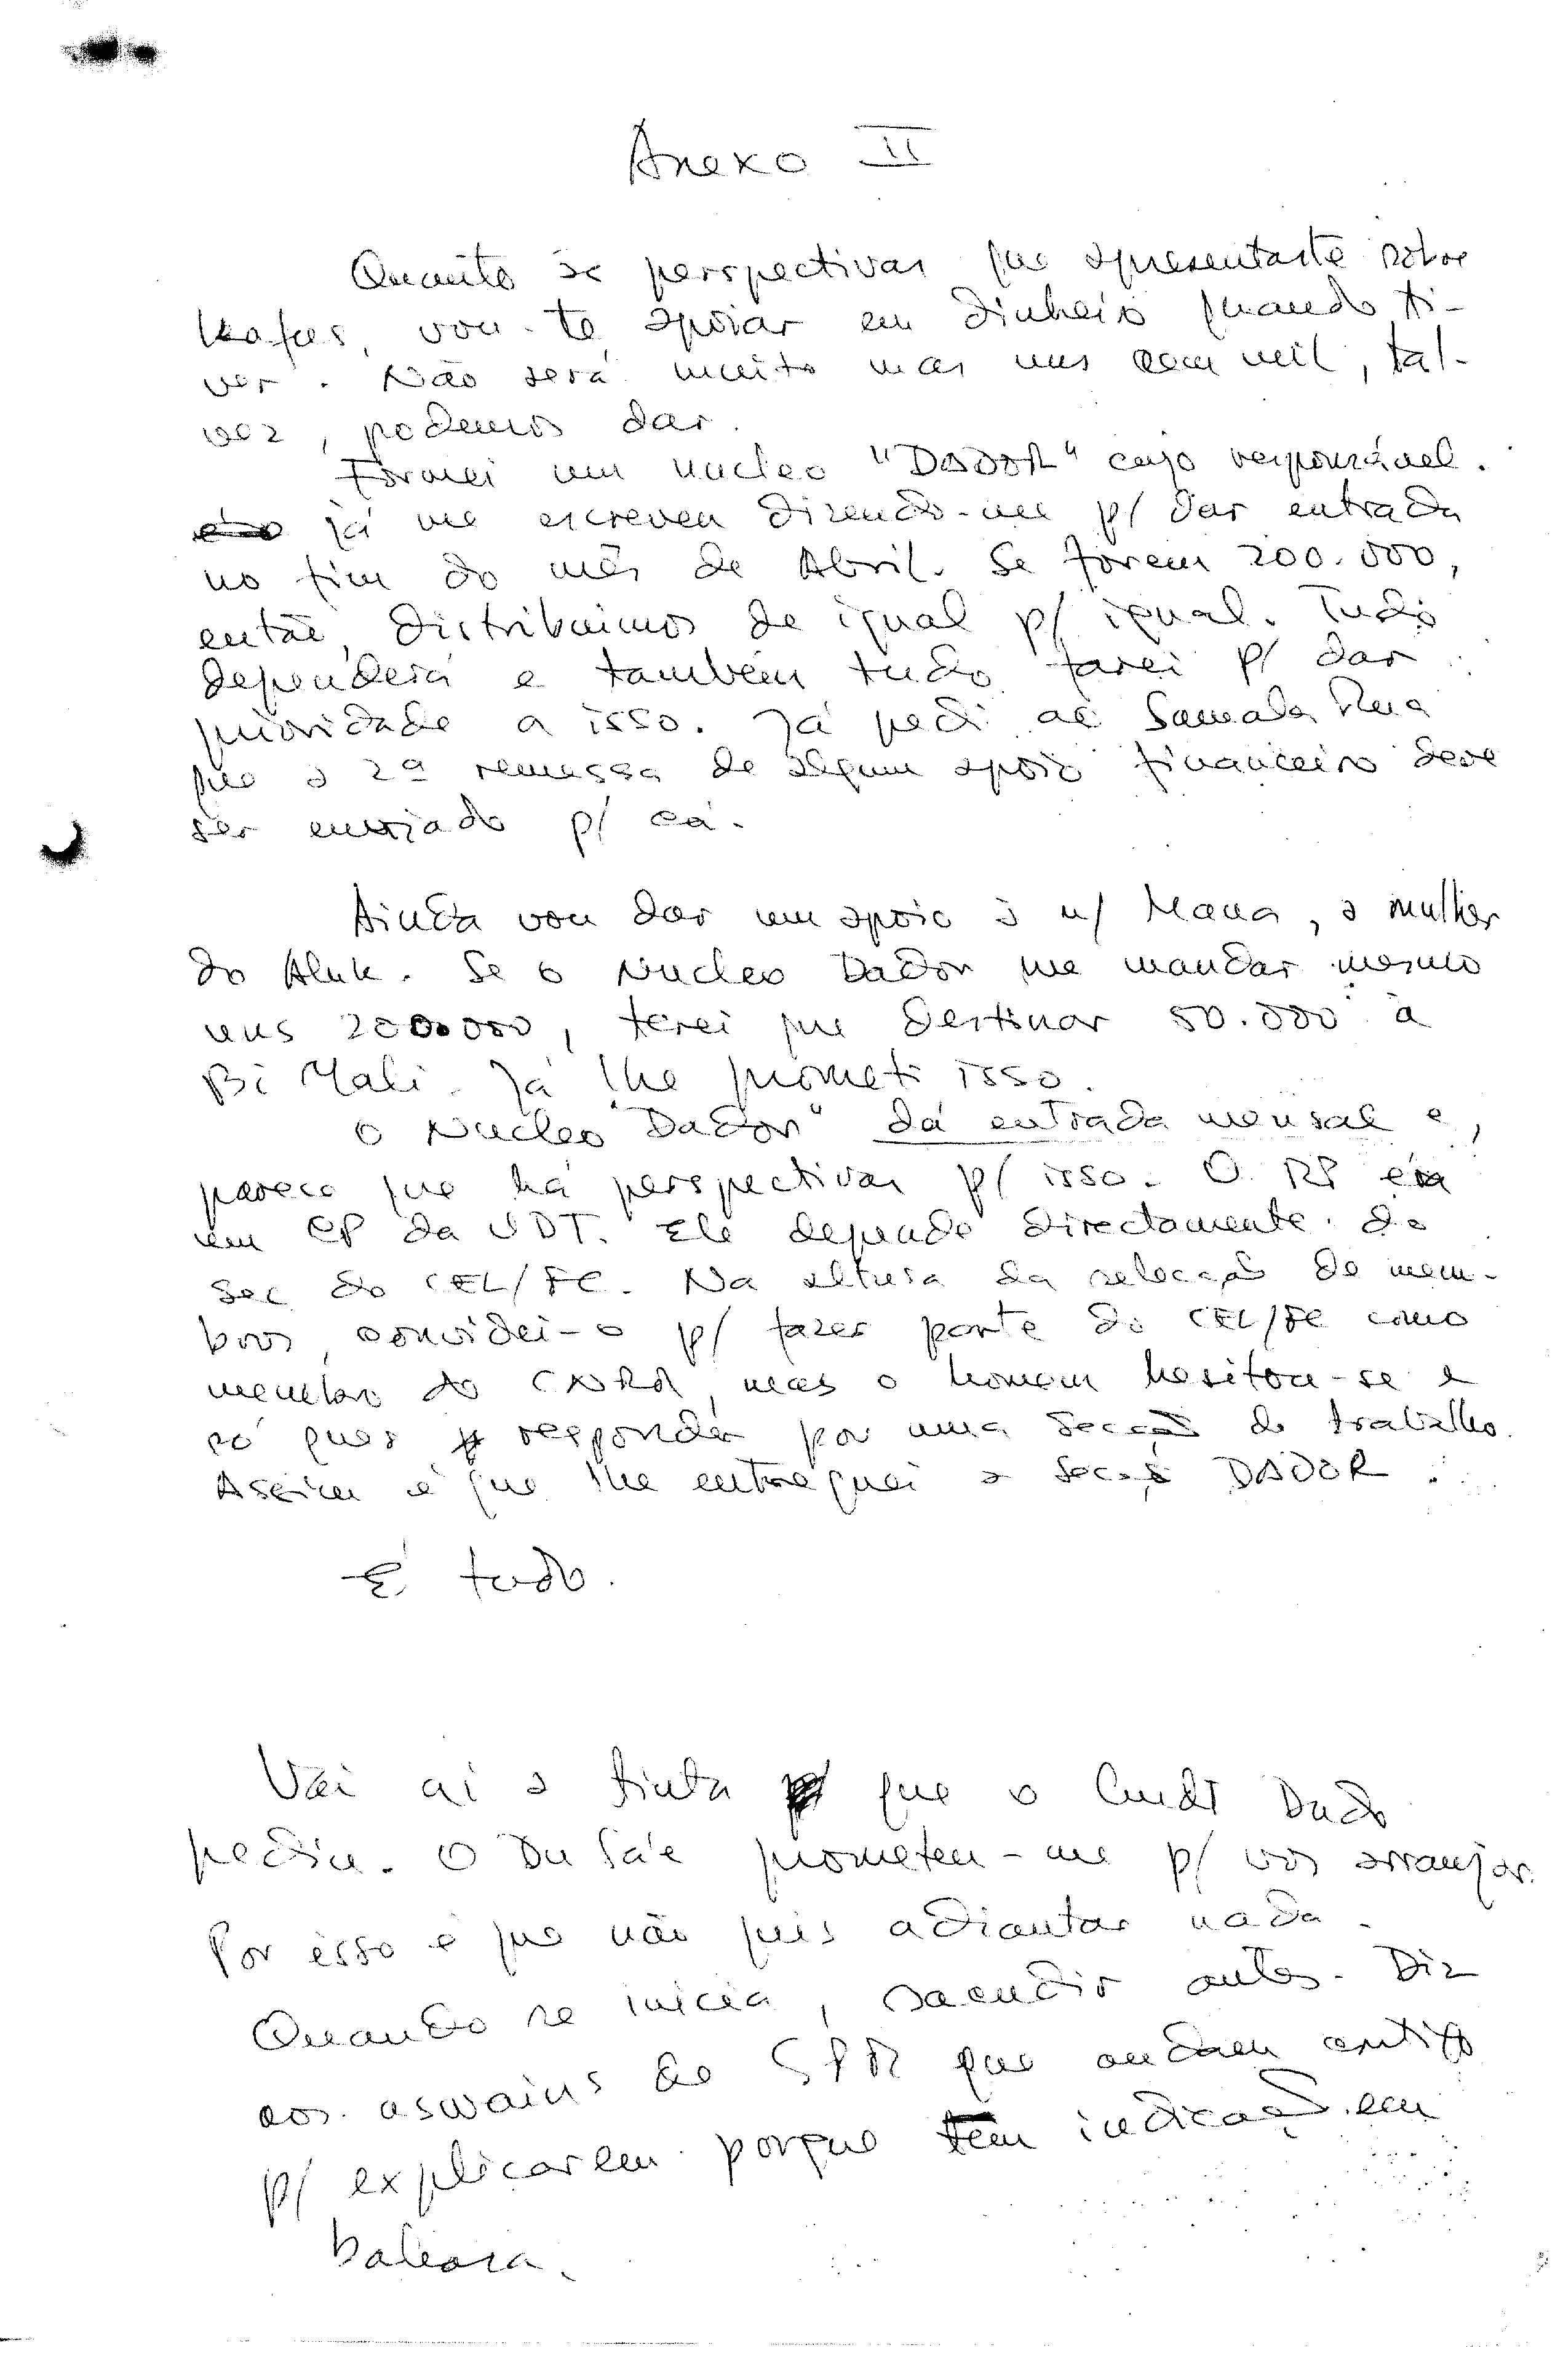 Anexo II
Quanto às perspectivas que apresentaste sobre
vou-te apoiar em dinheiro quando ti-
ver. Não será muito mas uns cem mil, tal-
vez, podemos dar.
Formei um nucleo "DADOR" cujo responsável
já me escreveu dizendo-me p/ dar entrada
no fim do mês de Abril. Se forem 200.000,
então, distribuimos de igual p/ igual. Tudo
dependerá e também tudo farei p/ dar
prioridade a isso. Já pedi ao Samala Rua
que a 2ª remessa de algum apoio financeiro deve
ser enviado p/ cá.
Ainda vou dar um apoio à n/ Mana, a mulher
do Aluk. Se o Nucleo Dador me mandar mesmo
uns 200.000, terei que destinar 50.000 à
Bi Mali. Já lhe prometi isso.
O Nucleo "Dador" dá entrada mensal e,
parece que há perspectivas p/ isso. O RP era
um CP da UDT. Ele depende directamente do
Sec do CEL/FC. Na altura da selecção de mem-
bros, convidei-o p/ fazer parte do CEL/FC como
membro do CNRM, mas o homem hesitou-se e
só quer responder por uma secção de trabalho.
Assim é que lhe entreguei a Secção DADOR.
É tudo.
Vai aí a tinta que o Cmdt Dudo
pediu. O Du Sa'e prometeu-me p/ vos arranjar.
Por isso é que não quis adiantar nada.
Quando se inicia, sacudir antes. Diz
aos aswains do SPR que andem contigo
p/ explicarem porque tem indicação em